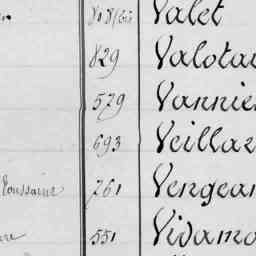 818/bis Valet
829 Valotai
579 Vannie
693 Veillar
Toussaint 761 Vengean
551 Vidamo